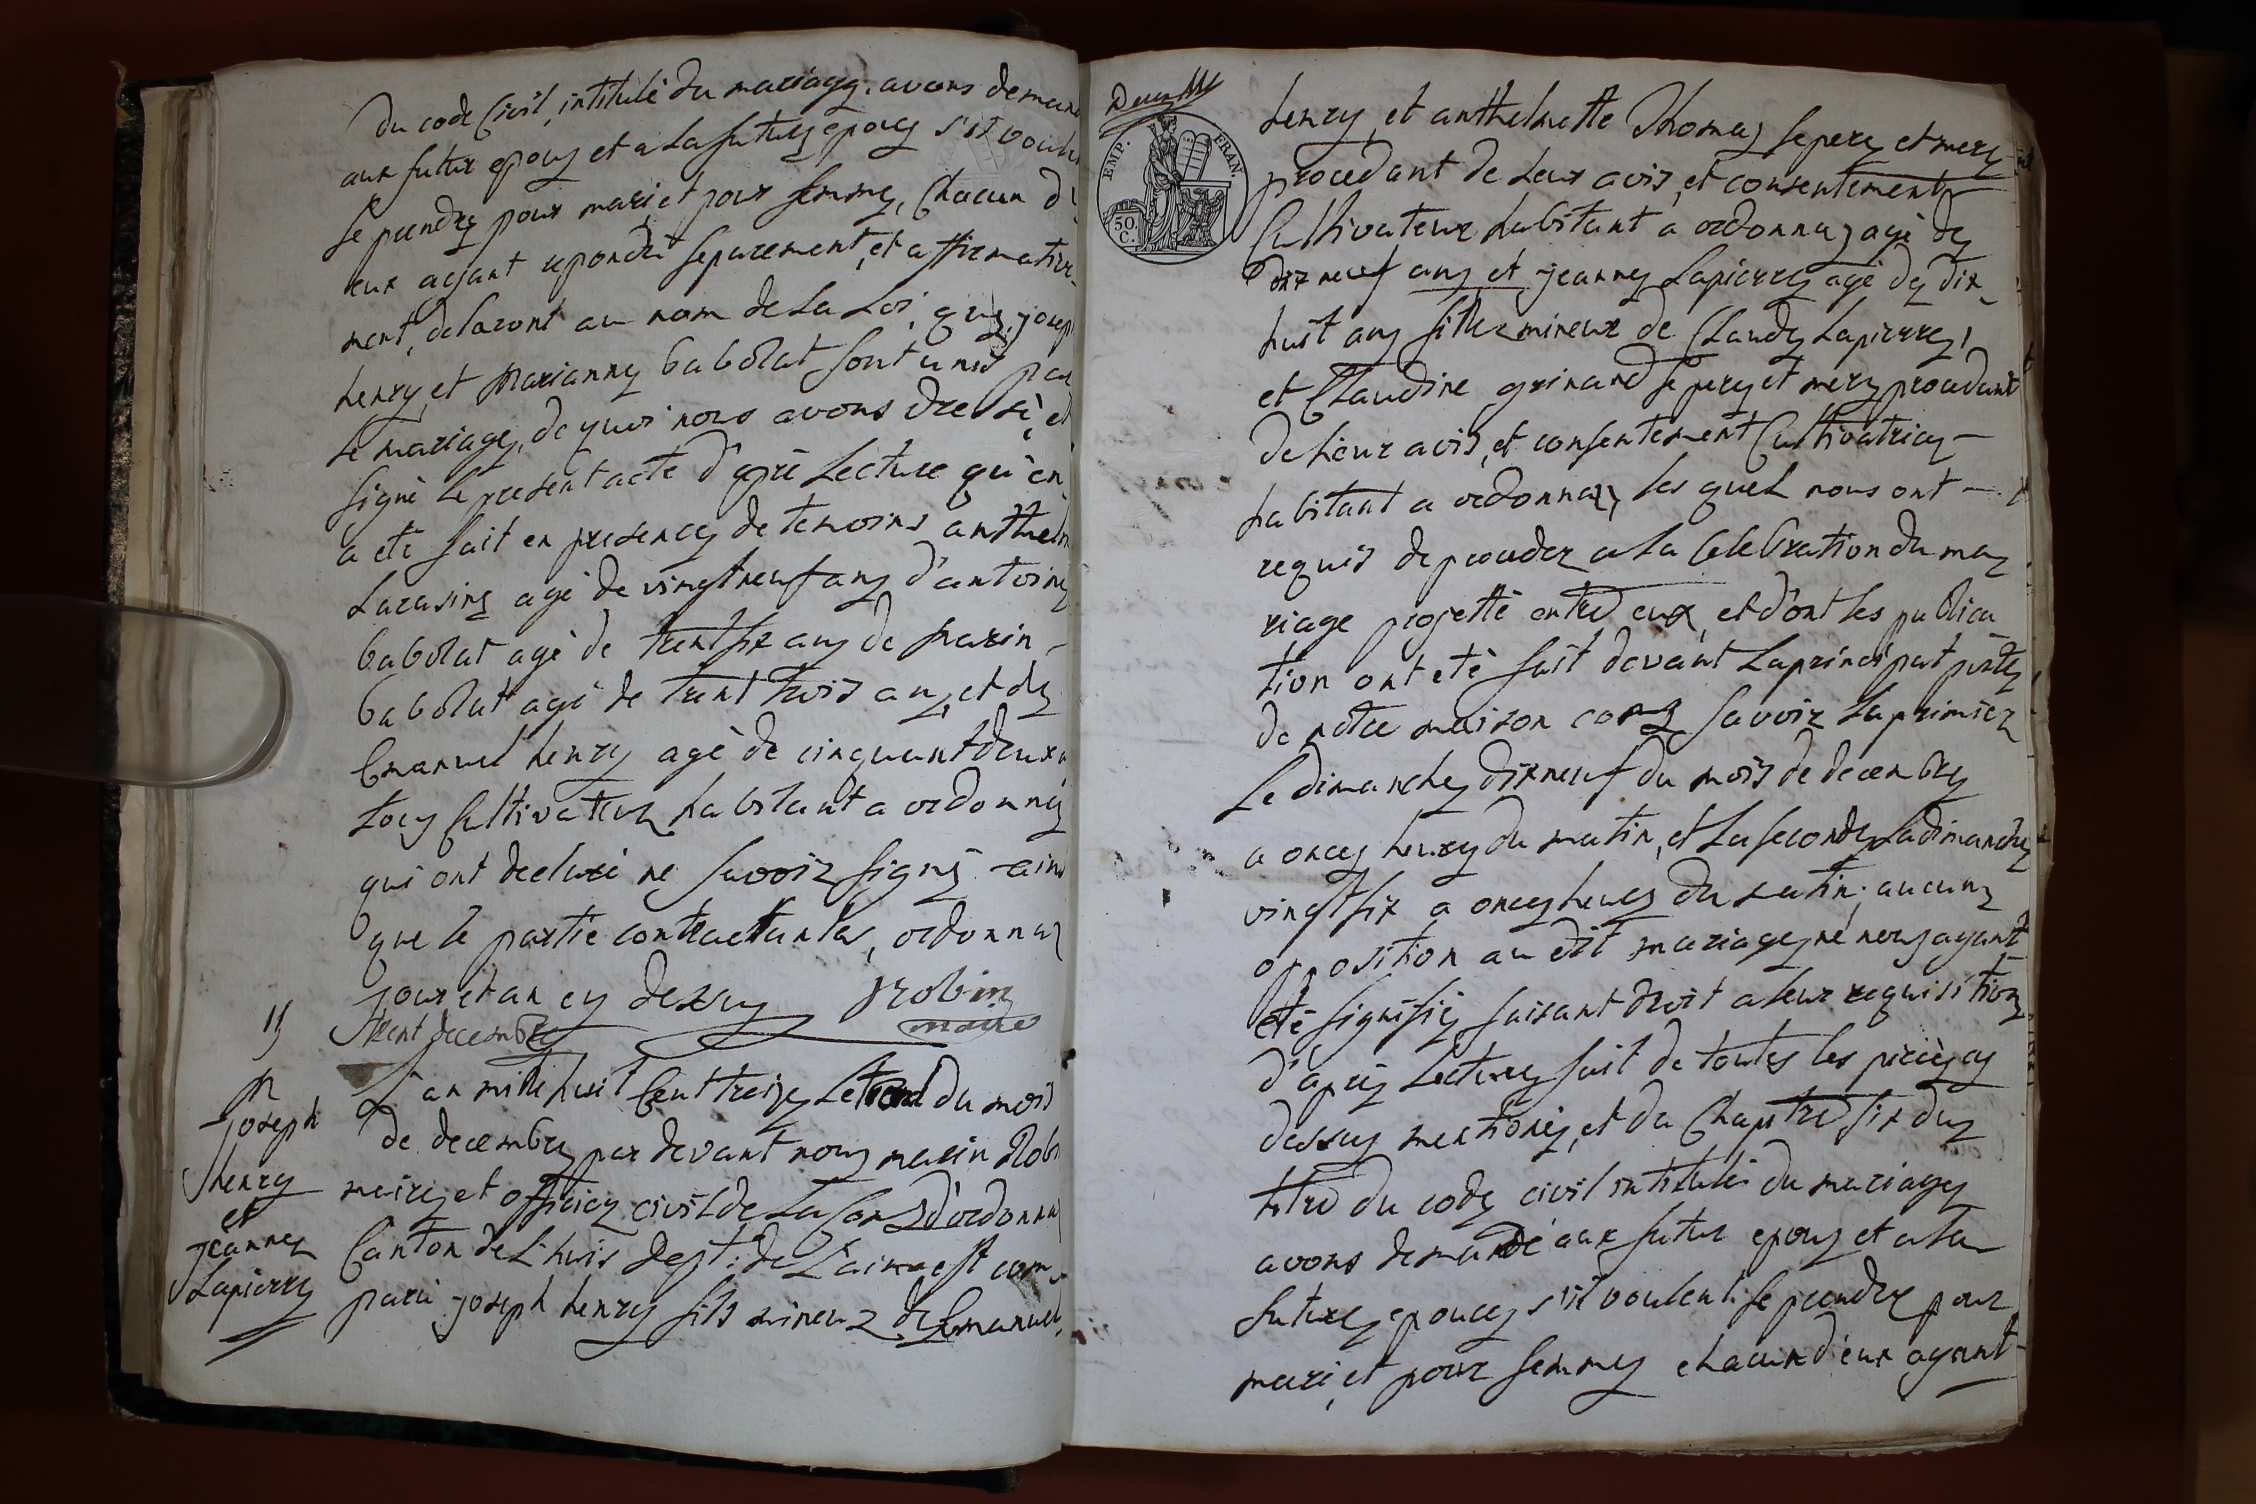 du code Civil, intitulé du mariage. avons deman
aux futur epoug et a la future epoug s'il voule
se prendre pour mari, et pour femme, Chacun d'
eux ayant repondu separement, et affirmative-
ment, declaront au nom de la Loi, que joseph
henry, et Marianne babolat sont unis par
le mariage, de quoi nous avons dressé, et
signé le present acte d'apré Lecture qu'en
a eté fait en presence de temoins anthelm
Larasine agé de vingt neuf ans d'antoine
babolat agé de trent six ans de Marin -
babolat agé de trent trois ans, et de
Emanuel henry agé de cinquant deux a
tous Cultivateur habitant a ordonna
qui ont declaré ne savoir signé ainsi
que le partie contractantes, ordonnaz
jour et an cy dessus Robin
maire
15
trent decembre
M
joseph
henry
et
jeanne
Lapierre
L'an mille huit Cent treize Le trent du mois
de decembre par devant nous marin Robi
maire et officier civil de La Com d'ordonna
Canton de L'huis Dept: de L'ain est com-
paru joseph henry fils mineur de Emanuel
EMP. FRAN.
50.
C.
henry, et anthelmette Thomas se pere et mere
procedant de Leur avis, et consentement
Cultivateur habitant a ordonnaz agé de
dix neuf ans et jeanne Lapierre agé de dix
huit ans fille mineur de Claude Lapierre,
et Claudine grinand se pere et mere procedant
de Leur avis, et consentement Cultivatrice -
habitant a ordonnaz, les quel nous ont -
requis de proceder a la Celebration du ma
riage projetté entre eux, et dont les publica
tion ont eté fait devant La principal porte
de notre maison com savoir La primier
Le dimanche dixneuf du mois de decembre
a onze heure du matin, et La seconde La dimanche
vingt six a onze heure du matin, aucune
opposition au dit mariage ne nous ayant
eté signifié faisant droit a leur requisition
d'aprés Lecture fait de toutes les pieces cy
dessus mentioné, et du Chapitre six du
titre du code civil intitulé du mariage
avons demandé aux futur epoug et a la
future epouce s'il voulent se prendre pour
mari, et pour femme chacun d'eux ayant